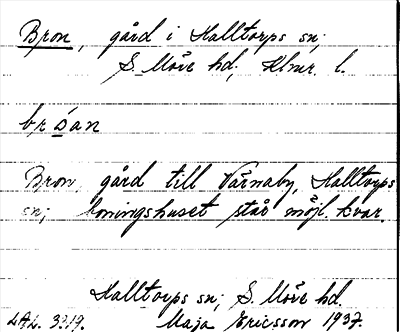 Bron, gård i Halltorps sn;
S. Möre hd, Klmr. l.
bróan
Bron, gård till Värnaby, Halltorps
sn; boningshuset står möjl. kvar.
Halltorps sn; S. Möre hd.
LAL. 3319. Maja Ericsson 1937.